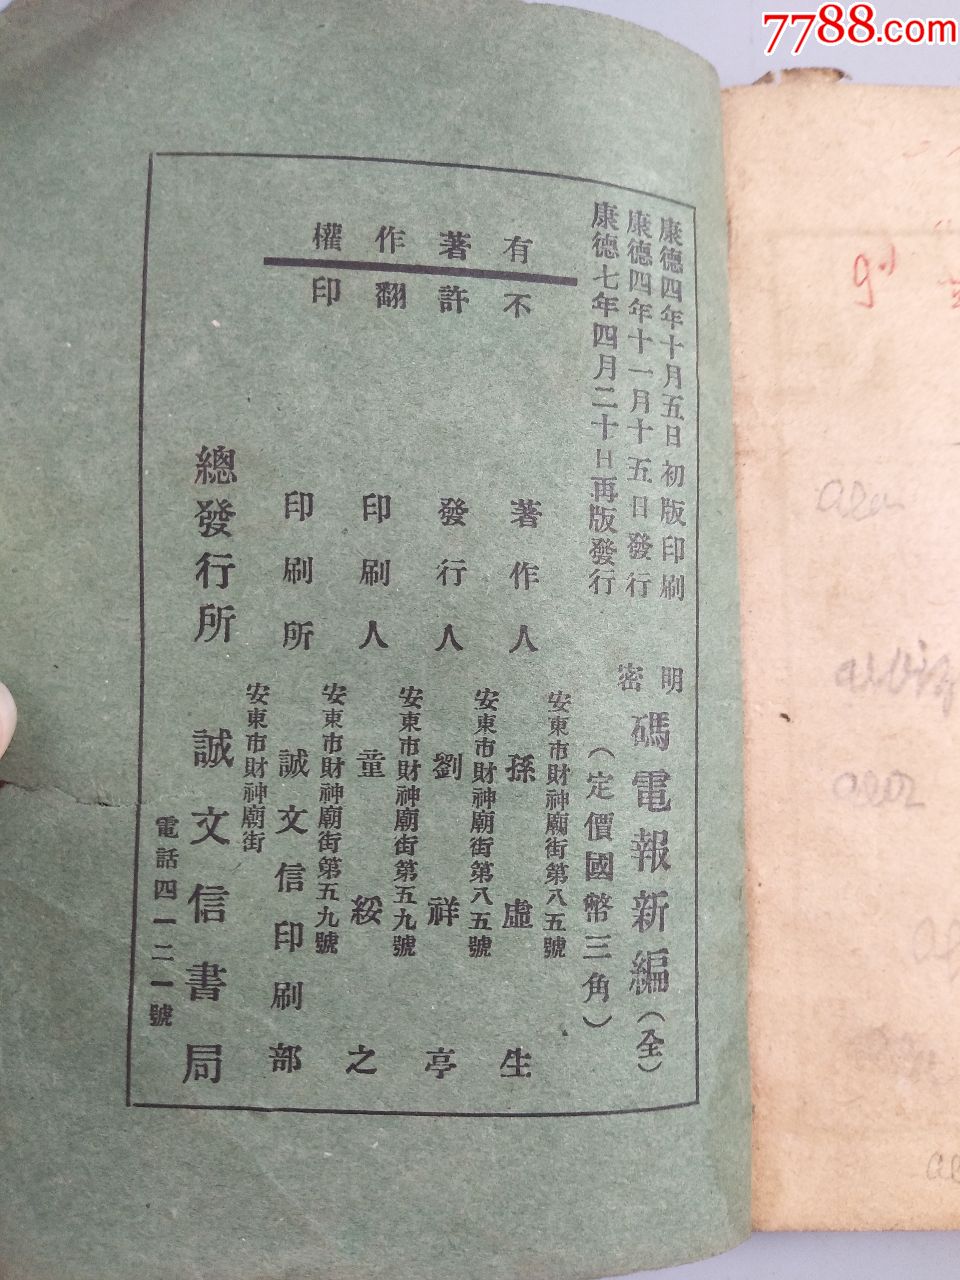 7788.com
康德四年十月五日初版印刷
康德四年十一月十五日發行
康德七年四月二十日再版發行
有著作權
不許翻印
明密碼電報新編(全)
(定價國幣三角)
安東市財神廟街第八五號
著作人 孫虛生
安東市財神廟街第八五號
發行人 劉祥亭
安東市財神廟街第五九號
印刷人 童綏之
安東市財神廟街第五九號
印刷所 誠文信印刷部
安東市財神廟街
總發行所 誠文信書局
電話四一二一號